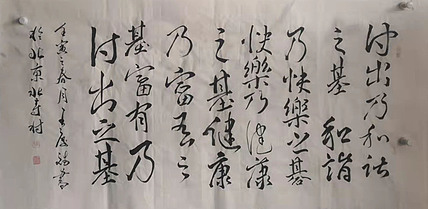 付出乃和諧
之基 和諧
乃快樂之基
快樂乃健康
之基健康
乃富有之
基富有乃
付出之基
壬寅之春月
於北京北寺村